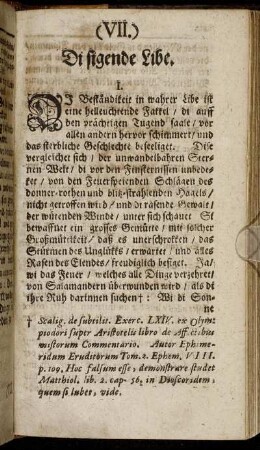 (VII.)
Di sigende Libe.
I.
DJ Beständikeit in wahrer Libe ist
eine helleuchtende Fakkel / di auff
den prächtigen Tugend saale / vor
allen andern hervor schimmert / und
das sterbliche Geschlechte beseeliget. Dise
vergleichet sich / der unwandelbahren Ster-
nen Welt / di vor den Finsternissen unbedek-
ket / von den Feuerspeienden Schlägen des
donner-rothen und blitz-strahlenden Hagels /
nicht getroffen wird / und di rasende Gewalt /
der wütenden Winde / unter sich schauet. Si
bewaffnet ein grosses Gemüte / mit solcher
Großmütikeit / daß es unerschrokken / das
Stürmen des Unglükkes / erwartet / und alles
Rasen des Elendes / freudiglich besiget. Ja!
wi das Feuer / welches alle Dinge verzehret /
von Salamandern überwunden wird / als di
ihre Ruh darinnen suchen † : Wi di Son-
ne
† Scalig. de subtilit. Exerc. LXIV. ex Olym-
piodori super Aristotelis libro de Aff. cœlibus
mistorum Commentario. Autor Epheme-
ridum Eruditorum Tom. 2. Ephem. VIII.
p. 109. Hoc falsum esse, demonstrare studet
Matthiol. lib. 2. cap. 56. in Dioscoridem,
quem si lubet, vide.